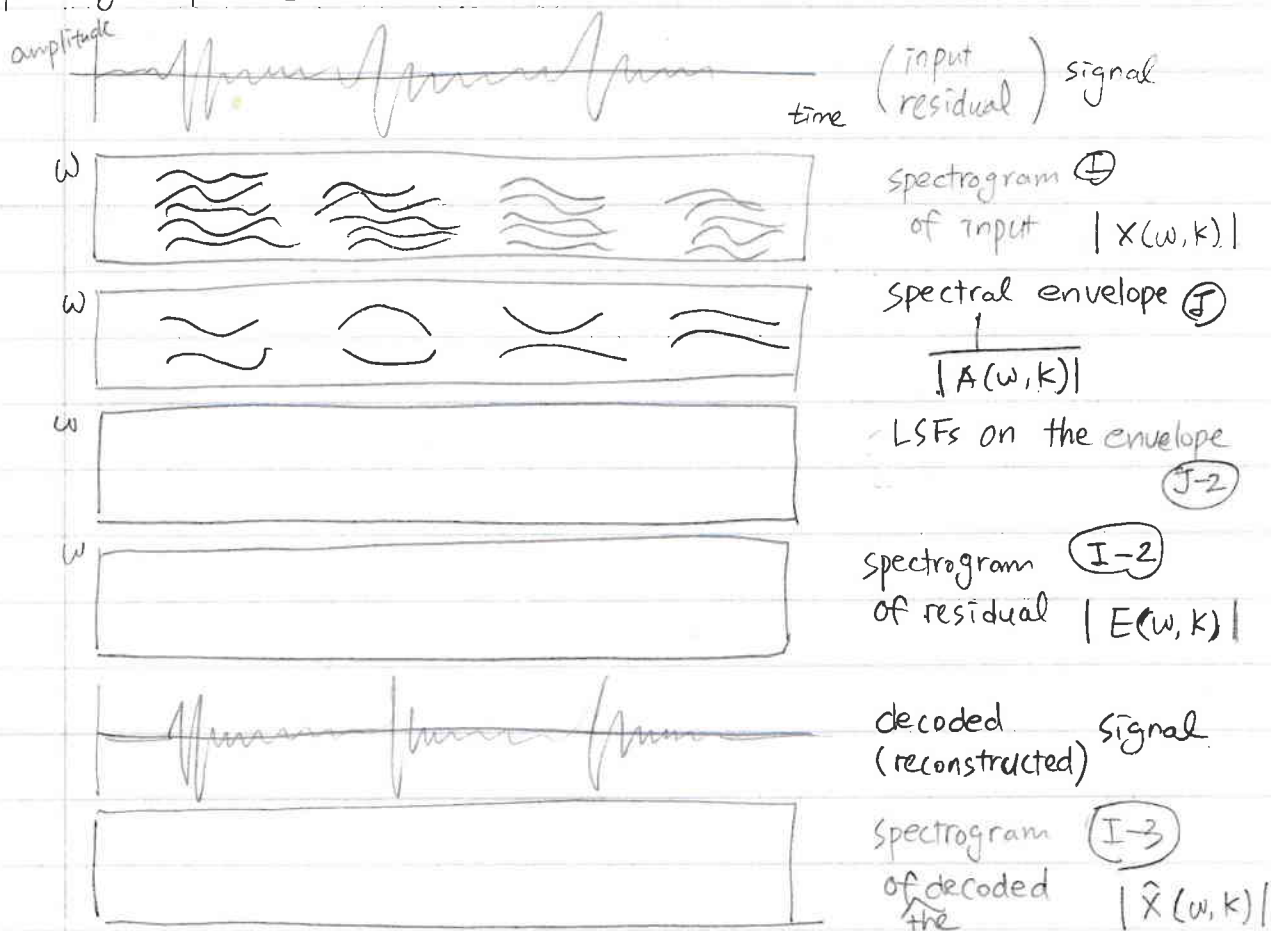 amplitude
time
(input
residual) signal
ω
spectrogram I
of input |X(ω,k)|
ω
spectral envelope J
|A(ω,k)|
ω
LSFs on the envelope
J-2
ω
spectrogram I-2
of residual |E(ω,k)|
decoded
(reconstructed) signal
spectrogram I-3
of decoded |X̂(ω,k)|
the